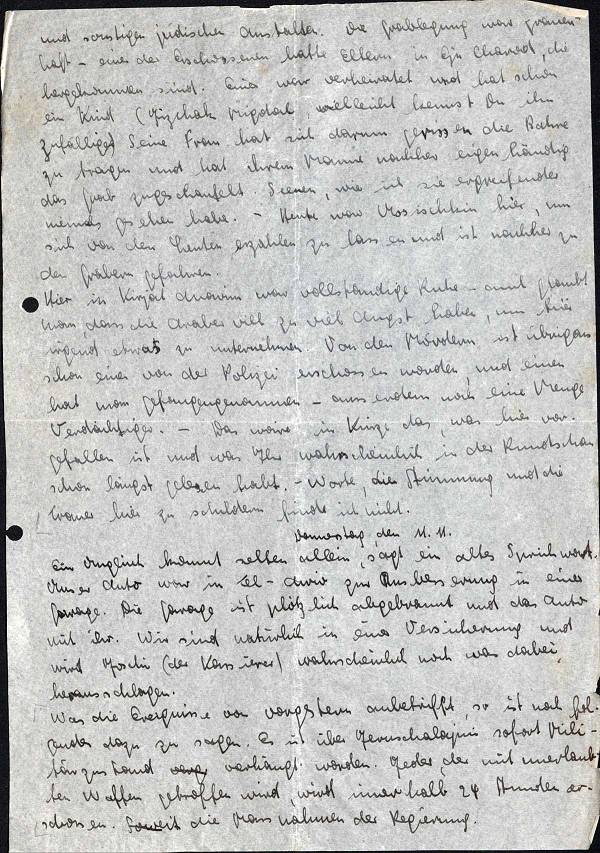 und sonstigen jüdischen Anstalten. Die Grablegung war grauen-
haft – einer der Erschossenen hatte Eltern in Ejn Charod, die
hergekommen sind. Einer war verheiratet und hat schon
ein Kind (Jizchak Migdal, vielleicht kennst Du ihn
zufällig) Seine Frau hat sich darum gerissen die Bahre
zu tragen und hat ihrem Manne nachher eigenhändig
das Grab zugeschaufelt. Scenen, wie ich sie ergreifender
niemals gesehen habe. – Heute war Ussischkin hier, um
sich von den Leuten erzählen zu lassen und ist nachher zu
den Gräbern gefahren.
Hier in Kirjat Anavim war vollständige Ruhe – und glaubt
man dass die Araber viel zu viel Angst haben, um hier
irgend etwas zu unternehmen. Von den Mördern ist übrigens
schon einer von der Polizei erschossen worden, und einen
hat man gefangengenommen – ausserdem noch eine Menge
Verdächtiger. – Das wäre in Kürze das, was hier vor-
gefallen ist und was Ihr wahrscheinlich in der Rundschau
schon längst gelesen habt. – Worte, die Stimmung und die
Trauer hier zu schildern finde ich nicht.
Donnerstag, den 11. 11.
Ein Unglück kommt selten allein, sagt ein altes Sprichwort.
Unser Auto war in Tel-Aviv zur Ausbesserung in einer
Garage. Die Garage ist plötzlich abgebrannt und das Auto
mit ihr. Wir sind natürlich in einer Versicherung und
wird (der Kassierer) wahrscheinlich noch was dabei
herausschlagen.
Was die Ereignisse von vorgestern anbetrifft, so ist noch fol-
gendes dazu zu sagen. Es ist über Jeruschalajim sofort Mili-
tärzustand verhängt worden. Jeder, der mit unerlaub-
ten Waffen getroffen wird, wird innerhalb 24 Stunden er-
schossen. Soweit die Massnahmen der Regierung.